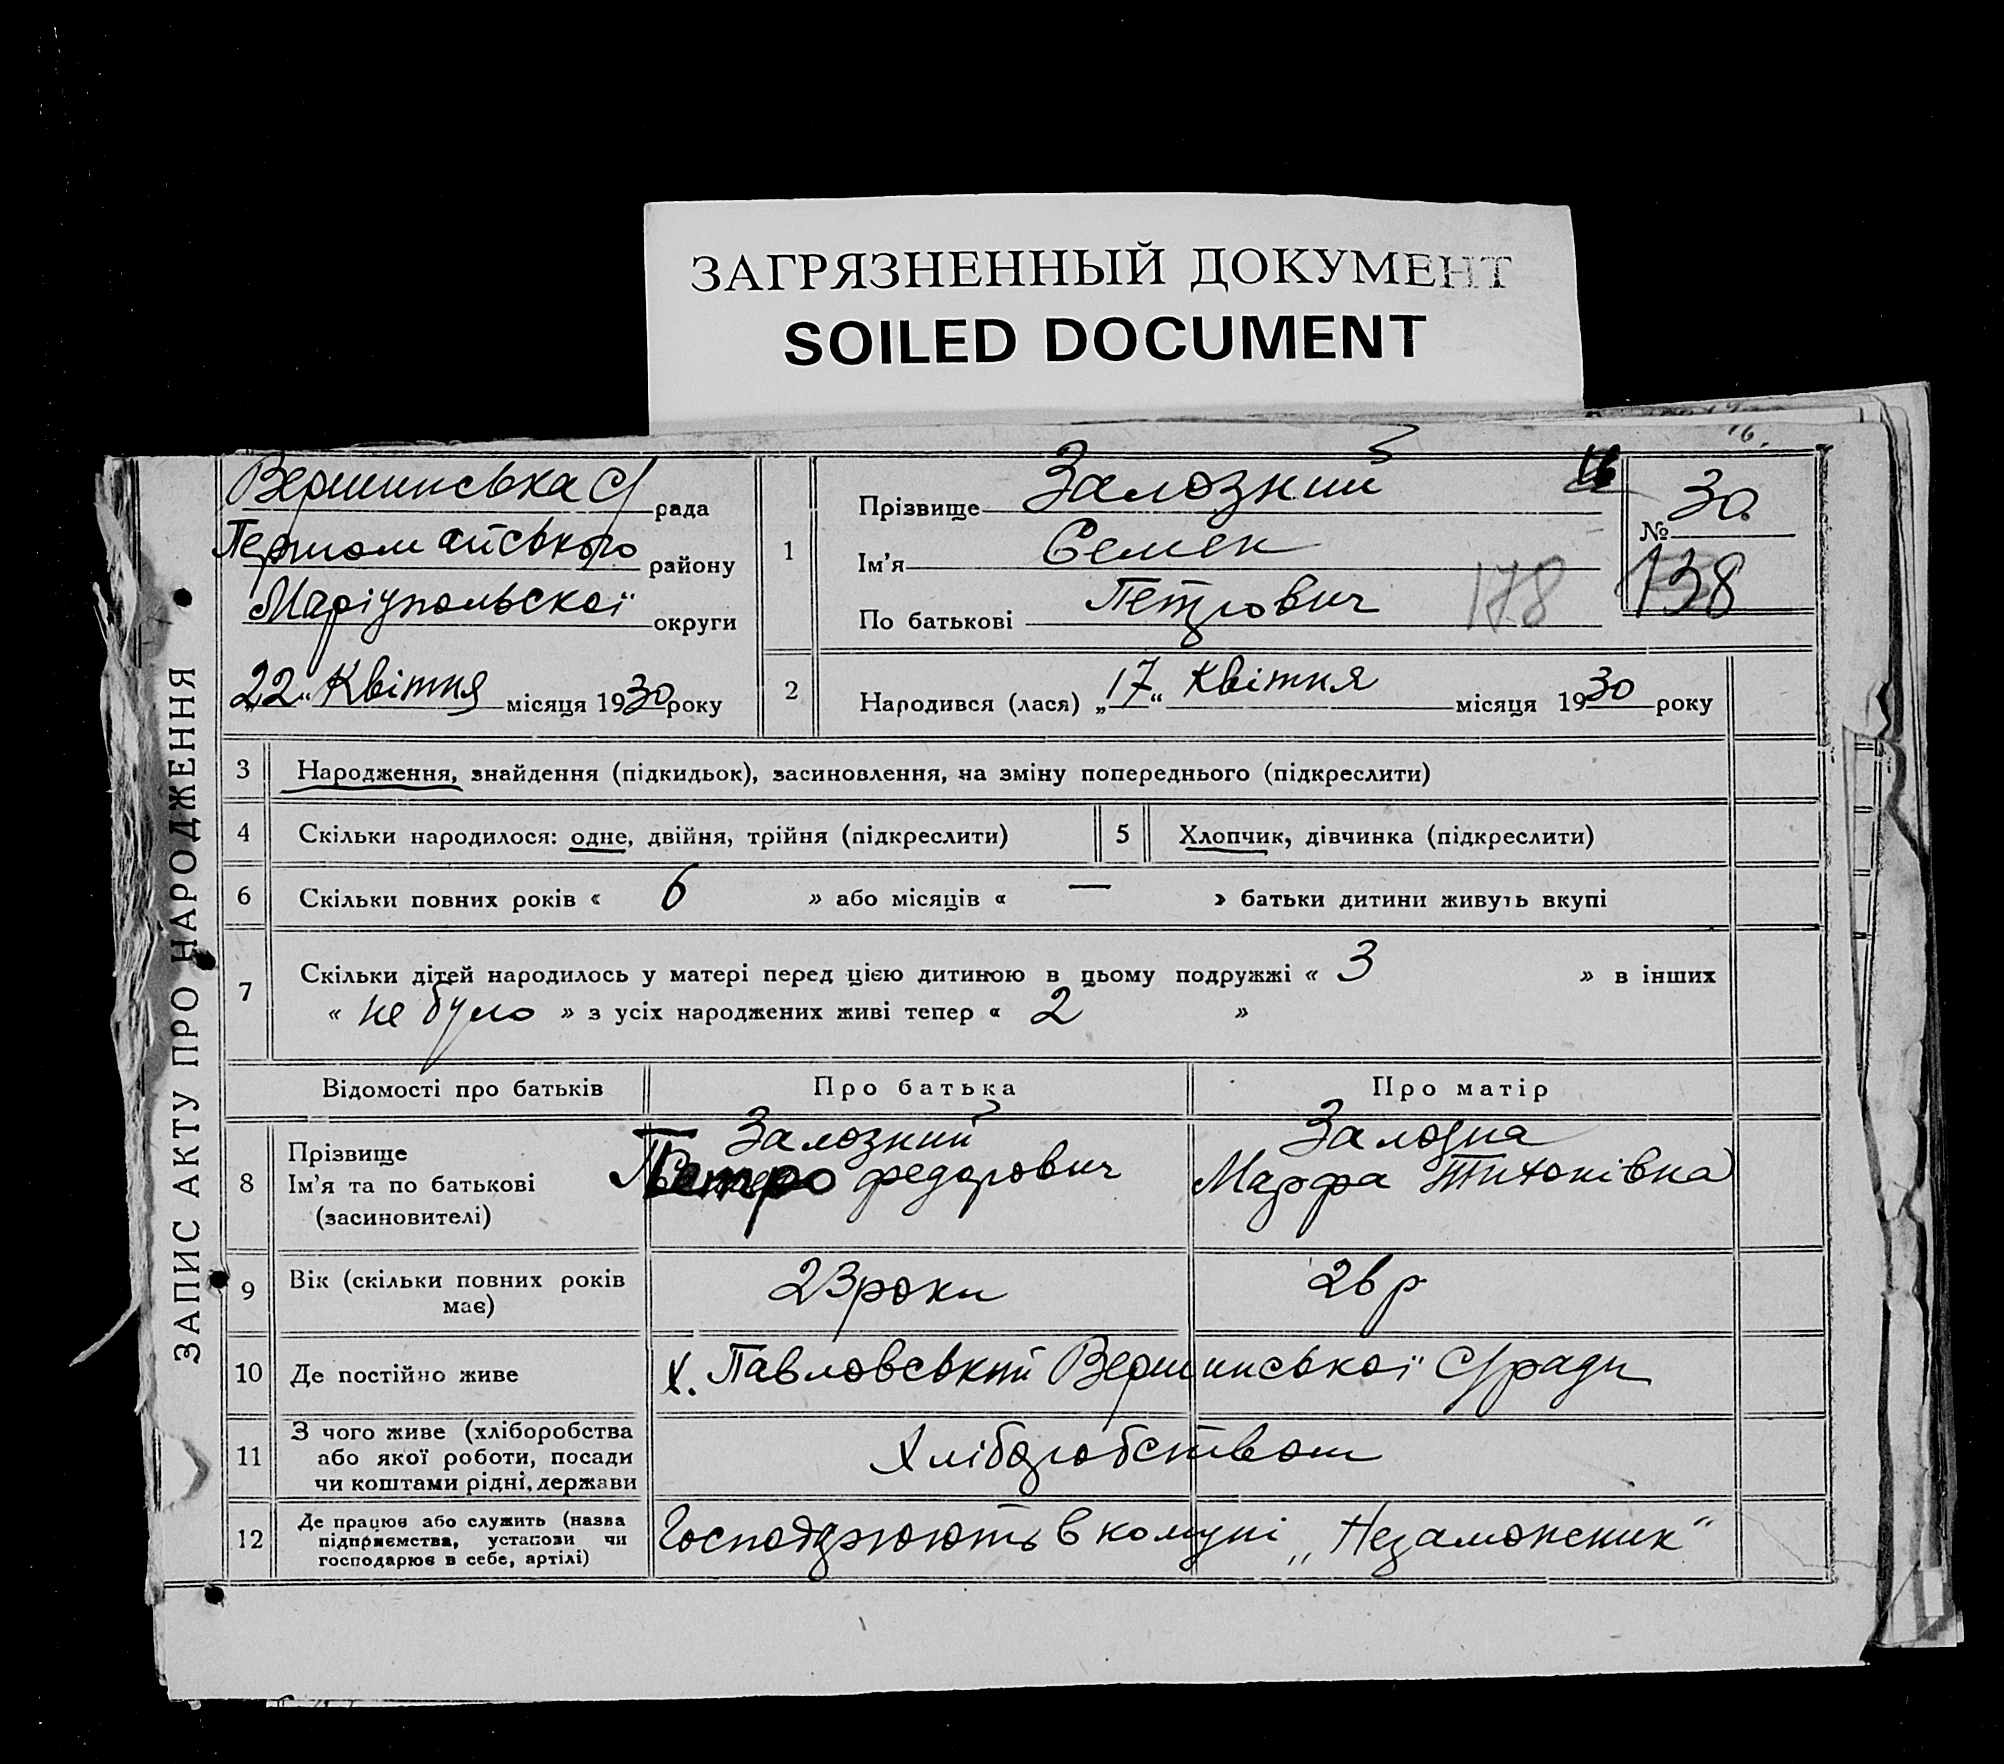 ЗАГРЯЗНЕННЫЙ ДОКУМЕНТ
SOILED DOCUMENT
16.
ЗАПИС АКТУ ПРО НАРОДЖЕННЯ
Вершинська с/рада
Першомайського району
Маріупольської округи
„22“ Квітня місяця 1930 року
1
Прізвище Залозний
Ім’я Семен
По батькові Петрович
178
№ 30.
138
2
Народився (лася) „17“ Квітня місяця 1930 року
3 Народження, знайдення (підкидьок), засиновлення, на зміну попереднього (підкреслити)
4 Скільки народилося: одне, двійня, трійня (підкреслити)
5 Хлопчик, дівчинка (підкреслити)
6 Скільки повних років « 6 » або місяців « — » батьки дитини живуть вкупі
7 Скільки дітей народилось у матері перед цією дитиною в цьому подружжі « 3 » в інших
« не було » з усіх народжених живі тепер « 2 »
Відомості про батьків
Про батька
Про матір
8
Прізвище
Ім’я та по батькові
(засиновителі)
Залозний
Петро Федорович
Залозна
Марфа Тихонівна
9
Вік (скільки повних років
має)
23 роки
26 р
10 Де постійно живе
х. Павловський Вершинської с/ради
11
З чого живе (хліборобства
або якої роботи, посади
чи коштами рідні, держави
Хліборобством
12
Де працює або служить (назва
підприємства, установи чи
господарює в себе, артілі)
Господарюють в комуні „Незаможник“